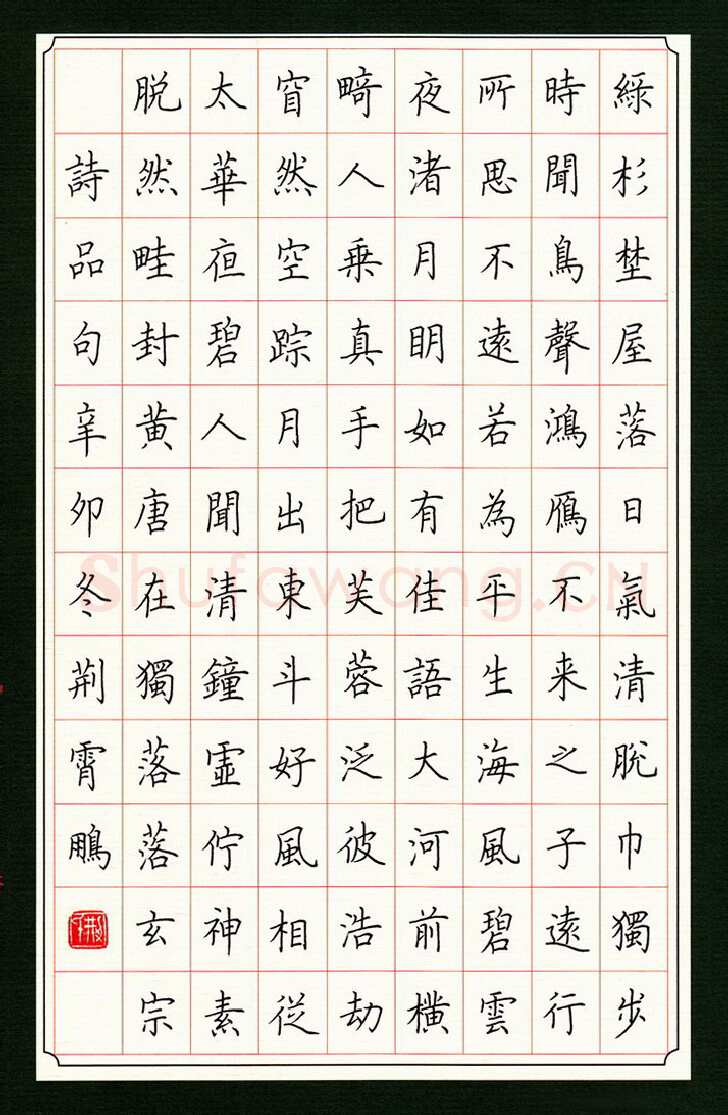 綠杉埜屋落日氣清脫巾獨步
時聞鳥聲鴻鴈不来之子遠行
所思不遠若為平生海風碧雲
夜渚月明如有佳語大河前橫
畸人乗真手把芙蓉泛彼浩劫
窅然空踪月出東斗好風相從
太華夜碧人聞清鐘虛佇神素
脱然畦封黃唐在獨落落玄宗
詩品句辛卯冬荆霄鵬
Shufawang.CN